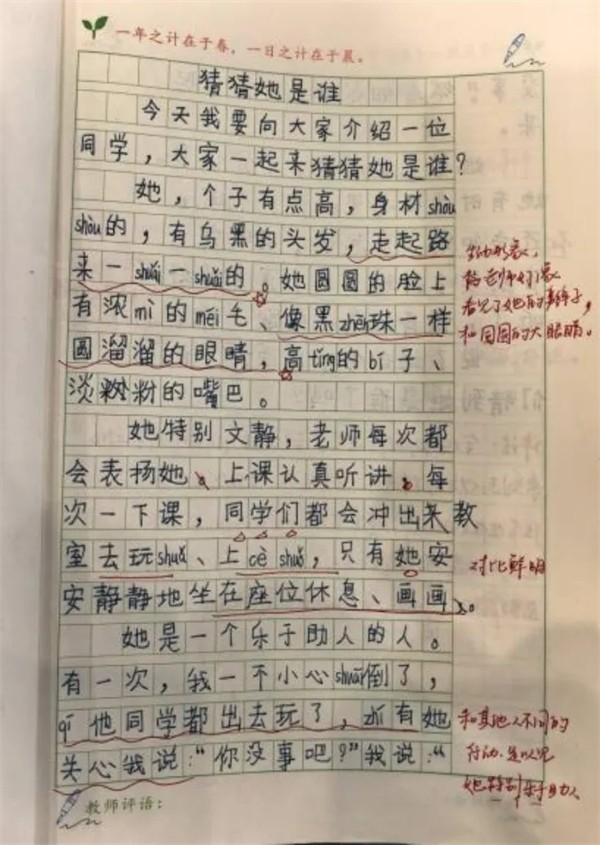 一年之计在于春，一日之计在于晨。
猜猜她是谁
今天我要向大家介绍一位
同学，大家一起来猜猜她是谁？
她，个子有点高，身材shòu
shòu的，有乌黑的头发，走起路
来一shuǎi一shuǎi的。她圆圆的脸上
有浓mì的méi毛、像黑zhēn珠一样
圆溜溜的眼睛，高tǐng的bí子、
淡粉粉的嘴巴。
她特别文静，老师每次都
会表扬她、上课认真听讲。每
次一下课，同学们都会冲出来教
室去玩shuǎ、上cè shuǒ，只有她安
安静静地坐在座位休息、画画
她是一个乐于助人的人。
有一次，我一不小心shuāi倒了，
qí他同学都出去玩了，zhǐ有她
关心我说：“你没事吧？”我说：“
生动形象，
给老师好像
看见了她的辫子，
和圆圆的大眼睛。
对比鲜明
和其他人不同的
行动，足以见
她特别乐于助人
教师评语：